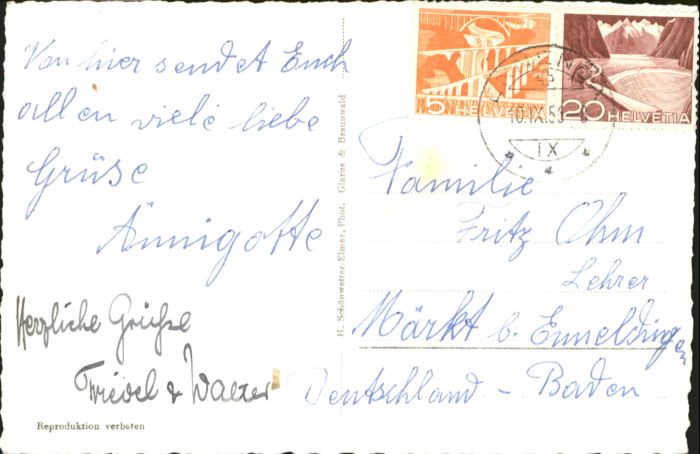 Von hier sendet Euch
allen viele liebe
Grüse
Ännigotte
Herzliche Grüße
Friedel & Walter
Reproduktion verboten
H. Schönwetter-Elmer, Phot. Glarus & Braunwald
5 HELVETIA
20 HELVETIA
IX
Familie
Fritz Ohm
Lehrer
Märkt b. Enmeldingen
Deutschland - Baden